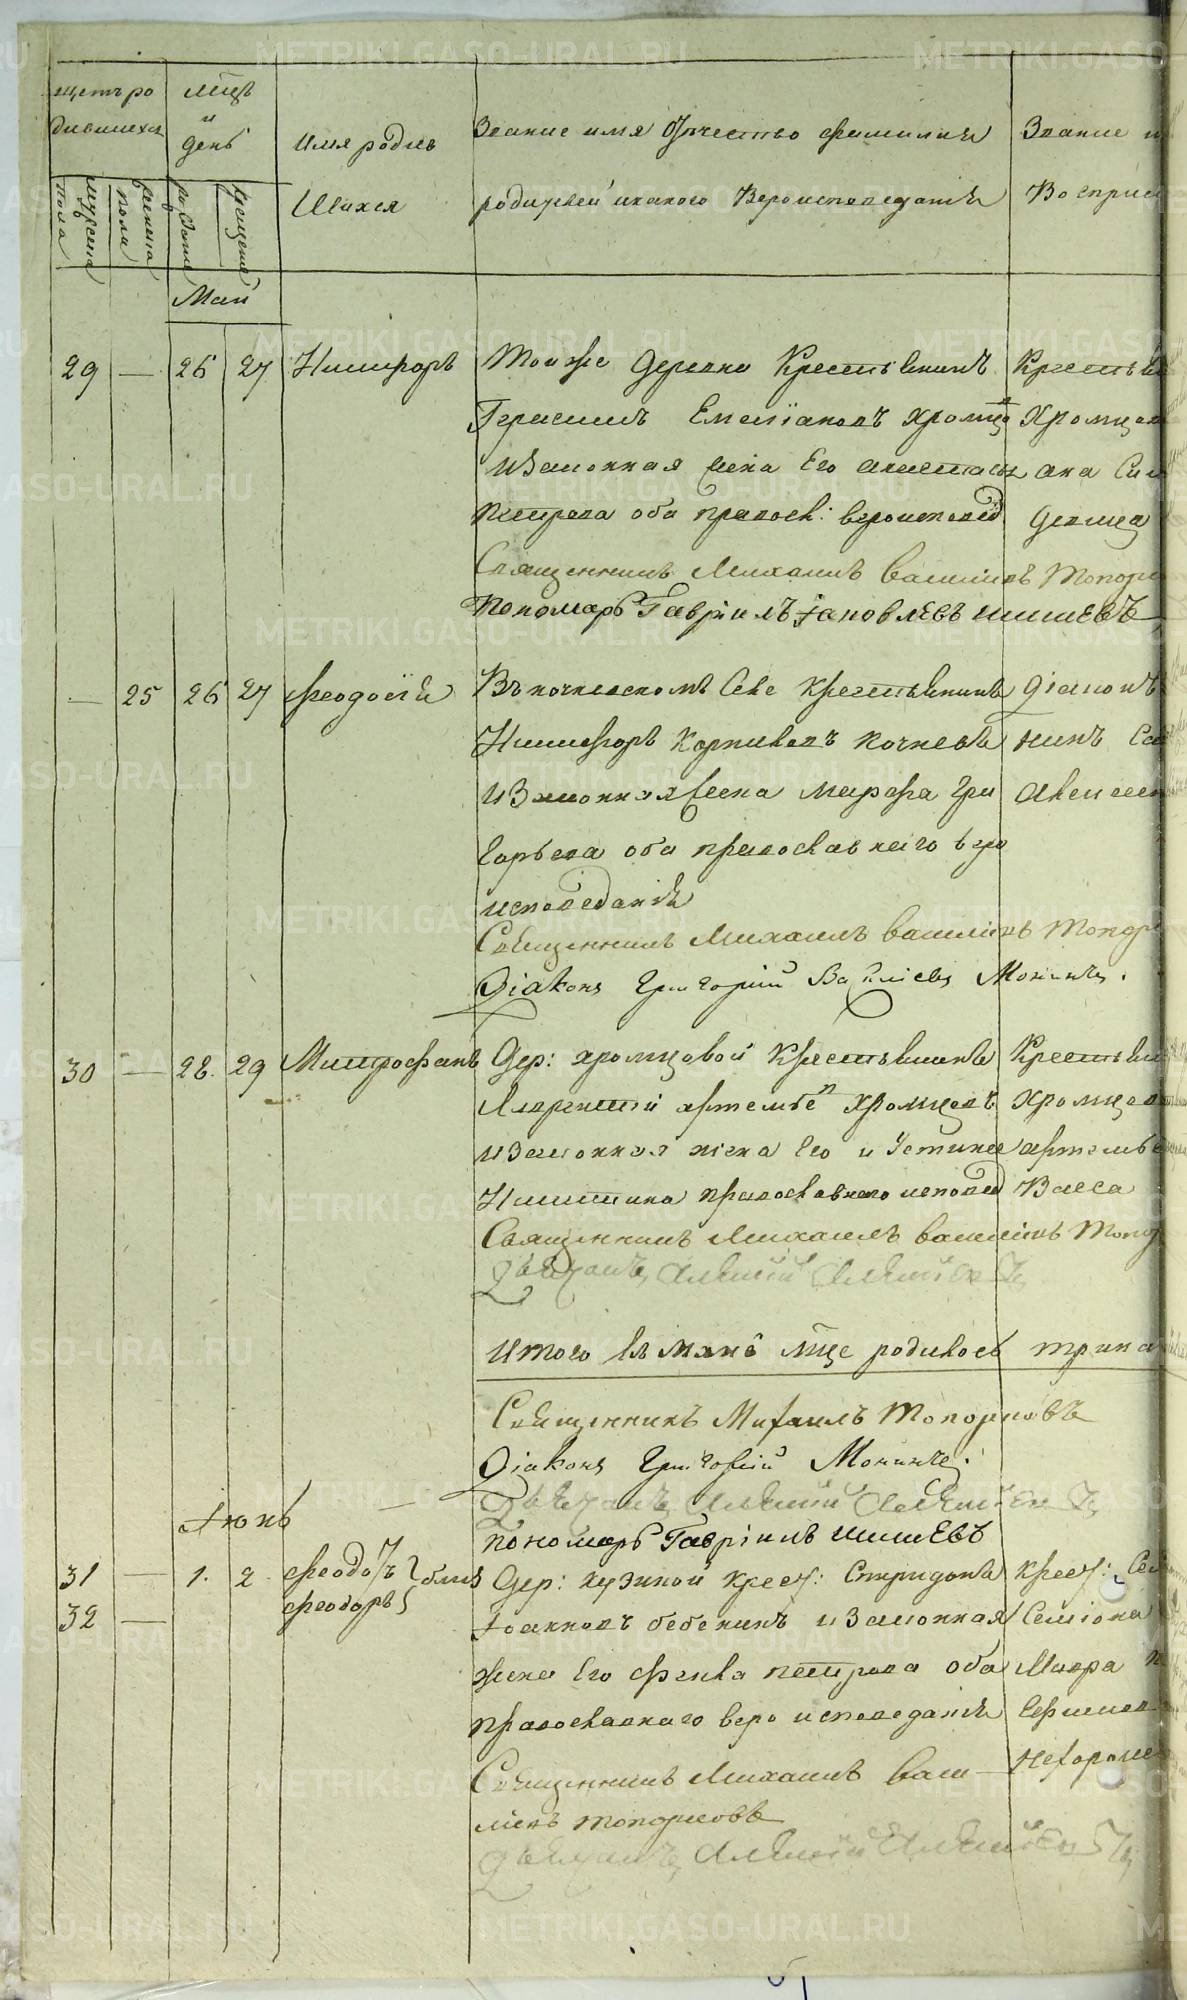 щетъ ро
дившихся
мцъ
и
день
Имя родив
шихся
Звание имя Отчество фамилия
родителей и какого Вероисповедания
Звание и
Восприе
мужска
пола
женска
пола
рождения
крещения
Май
29 — 26 27 Никифоръ
Той же деревни Крестьянинъ
Герасимъ Емелїановъ Хромцо
и законная жена Его Анастасья
Петрова оба правосл: вероисповед
Священникъ Михаилъ Васильевъ Топор
Пономарь Гаврїилъ Iаковлевъ Шишевъ
Крестья
Хромцов
ана Си
девица
— 25 26 27 Феодосїя
Въ Кочневскомъ Селе Крестьянинъ
Никифоръ Корниловъ Кочневъ
и законная жена Марфа Гри
горьева оба православнаго веро
исповеданїя
Священникъ Михаилъ Васильевъ Топор
Дїаконъ Григорїй Васїлїевъ Мокинъ.
Дїаконъ
кинъ
Алексее
30 — 28. 29 Митрофанъ
Дер: Хромцовой Крестьянинъ
Лаврентїй Артемьев Хромцовъ
и законная жена Его Устинья
Никитина православнаго исповед
Священникъ Михаилъ Васильевъ Топор
Дьячокъ Алексїй Алексїевъ
Крестьян
Хромцов
Артемье
Васса
Итого въ Маие мце родилось трина
Священникъ Михаилъ Топорковъ
Дїаконъ Григорїй Мокинъ.
Дьячокъ Алексїй Алексїевъ
Пономарь Гаврїилъ Шишевъ
Iюнь
31 — 1. 2 Феодотъ близ
32 — Феодоръ
Дер: Кузиной Крест: Спиридонъ
Iоанновъ Бебенинъ и законная
жена Его Фекла Петрова оба
православнаго вероисповеданїя
Священникъ Михаилъ Васи
льевъ Топорковъ
Дьячокъ Алексїй Алексїевъ
Крест: Се
Семїона
Мавра
Ефимов